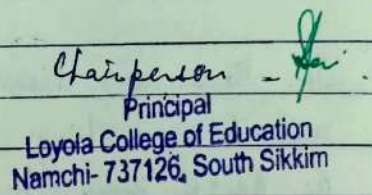 Chairperson -
Principal
Loyola College of Education
Namchi- 737126, South Sikkim